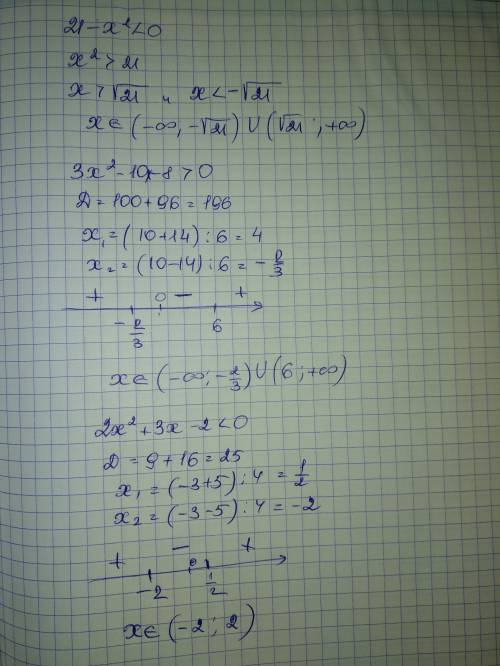 21 - x² < 0
x² > 21
x > √21 и x < -√21
x ∈ (-∞, -√21) ∪ (√21 ; +∞)
3x² - 10x - 8 > 0
D = 100 + 96 = 196
x₁ = (10+14) : 6 = 4
x₂ = (10-14) : 6 = -2/3
+ 0 - +
-2/3 6
x ∈ (-∞; -2/3) ∪ (6 ; +∞)
2x² + 3x - 2 < 0
D = 9 + 16 = 25
x₁ = (-3+5) : 4 = 1/2
x₂ = (-3-5) : 4 = -2
+ - +
0
-2 1/2
x ∈ (-2 ; 2)